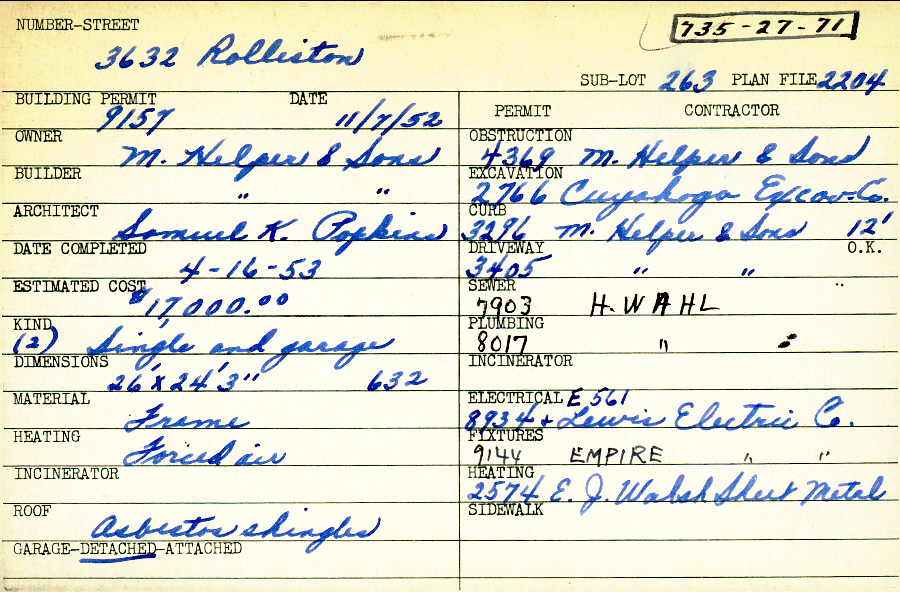 NUMBER-STREET
735-27-71
3632 Rolliston
SUB-LOT 263 PLAN FILE 2204
BUILDING PERMIT DATE
9157 11/7/52
OWNER
M. Helper & Sons
BUILDER
" "
ARCHITECT
Samuel K. Popkins
DATE COMPLETED
4-16-53
ESTIMATED COST
$17,000.00
KIND
(2) Single and garage
DIMENSIONS
26' x 24' 3" 632
MATERIAL
Frame
HEATING
Forced air
INCINERATOR
ROOF
Asbestos shingles
GARAGE-DETACHED-ATTACHED
PERMIT CONTRACTOR
OBSTRUCTION
4369 M. Helper & Sons
EXCAVATION
2766 Cuyahoga Excav. Co.
CURB
3296 M. Helper & Sons 12'
DRIVEWAY O.K.
3405 " "
SEWER "
7903 H. WAHL
PLUMBING
8017 " "
INCINERATOR
ELECTRICAL E 561
8934 + Lewis Electric Co.
FIXTURES
9144 EMPIRE " "
HEATING
2574 E. J. Walsh Sheet Metal
SIDEWALK